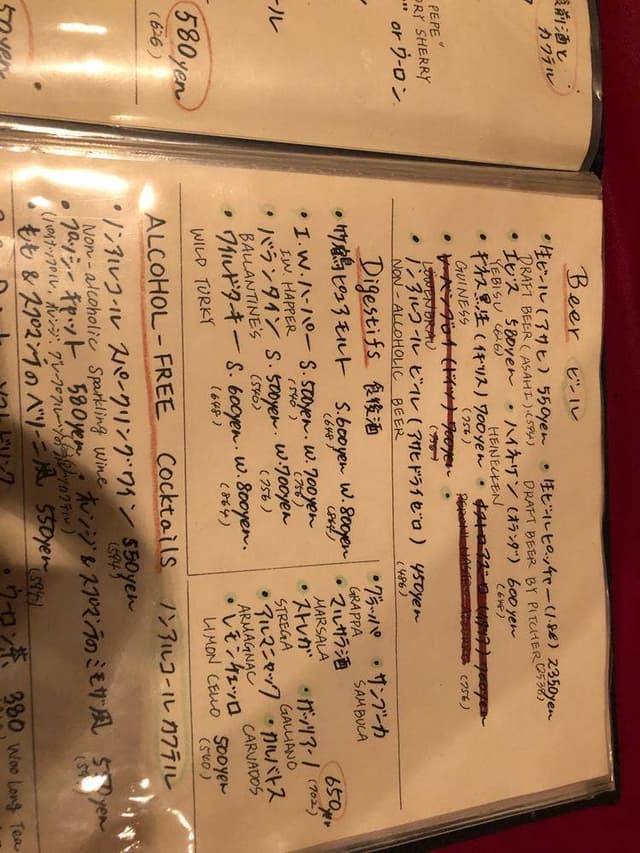 食前酒と
カクテル
PEPE"
DRY SHERRY
or ウーロン
580yen
(626)
Beer ビール
・生ビール(アサヒ) 550yen ・生ビールピッチャー(1.8ℓ) 2350yen
DRAFT BEER (ASAHI) (594) DRAFT BEER BY PITCHER (2538)
・エビス 580yen ・ハイネケン(オランダ) 600yen
YEBISU (626) HEINECKEN (648)
・ギネス黒生(イギリス) 700yen
GUINESS (756) (756)
・ノンアルコールビール(アサヒドライゼロ) 450yen
NON-ALCOHOLIC BEER (486)
Digestifs 食後酒
・竹鶴ピュアモルト S.600yen W.800yen
(648) (864)
・I.W.ハーパー S.500yen. W.700yen
I.W. HAPPER (540) (756)
・バランタイン S.500yen. W.700yen
BALLANTINES (540) (756)
・ワイルドターキー S.600yen. W.800yen.
WILD TORKY (648) (864)
・グラッパ ・サンブーカ
GRAPPA SAMBUCA
・マルサラ酒
MARSALA
・ストレガ ・ガッリアーノ 650yen
STREGA GALLIANO (702)
・アルマニャック ・カルバドス
ARMAGNAC CARVADOS
・レモンチェッロ 500yen
LIMON CELLO (540)
ALCOHOL-FREE Cocktails ノンアルコールカクテル
・ノンアルコール スパークリングワイン 550yen
Non-alcoholic Sparkling Wine (594)
・プッシーキャット 580yen ・オレンジ&スプマンテのミモザ風
・もも&スプマンテのベリーニ風 550yen
(594)
・ウーロン茶 380 Woo Long Tea